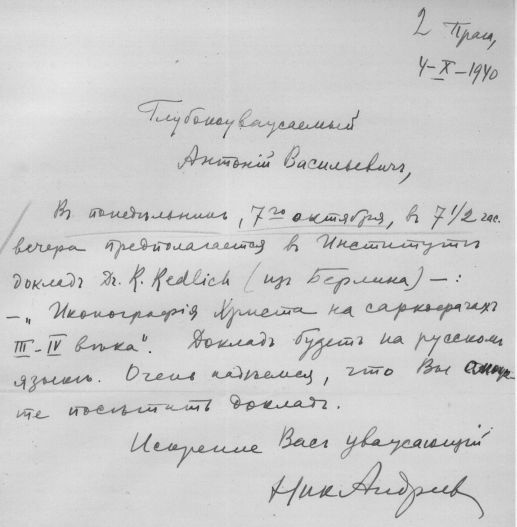 2 Прага,
4-X-1940
Глубокоуважаемый
Антоній Васильевичъ,
Въ понедѣльникъ, 7го октября, въ 7 1/2 час.
вечера предполагается въ Институтѣ
докладъ Dr. R. Redlich (изъ Берлина) —:
— „Иконографія Христа на саркофагахъ
III-IV вѣка“. Докладъ будетъ на русскомъ
языкѣ. Очень надѣемся, что Вы сможе-
те посѣтить докладъ.
Искренне Васъ уважающій
Ник Андреев